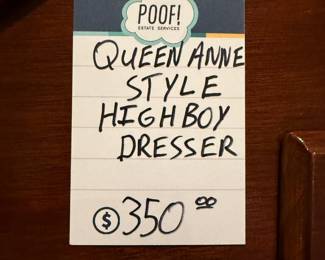 POOF!
ESTATE SERVICES
QUEEN ANNE
STYLE
HIGHBOY
DRESSER
$ 350 00